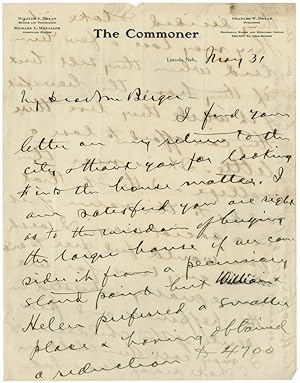 William J. Bryan
Editor and Proprietor
Richard L. Metcalfe
Associate Editor
Charles W. Bryan
Publisher
The Commoner
Lincoln, Neb., May 31
My Dear Mr Berger
I find your
letter on my return to the
city & thank you for looking
into the house matter. I
am satisfied you are right
as to the wisdom of buying
the large house if we con
sider it from a pecuniary
stand point but William &
Helen preferred a smaller
place & having obtained
a reduction to 4700